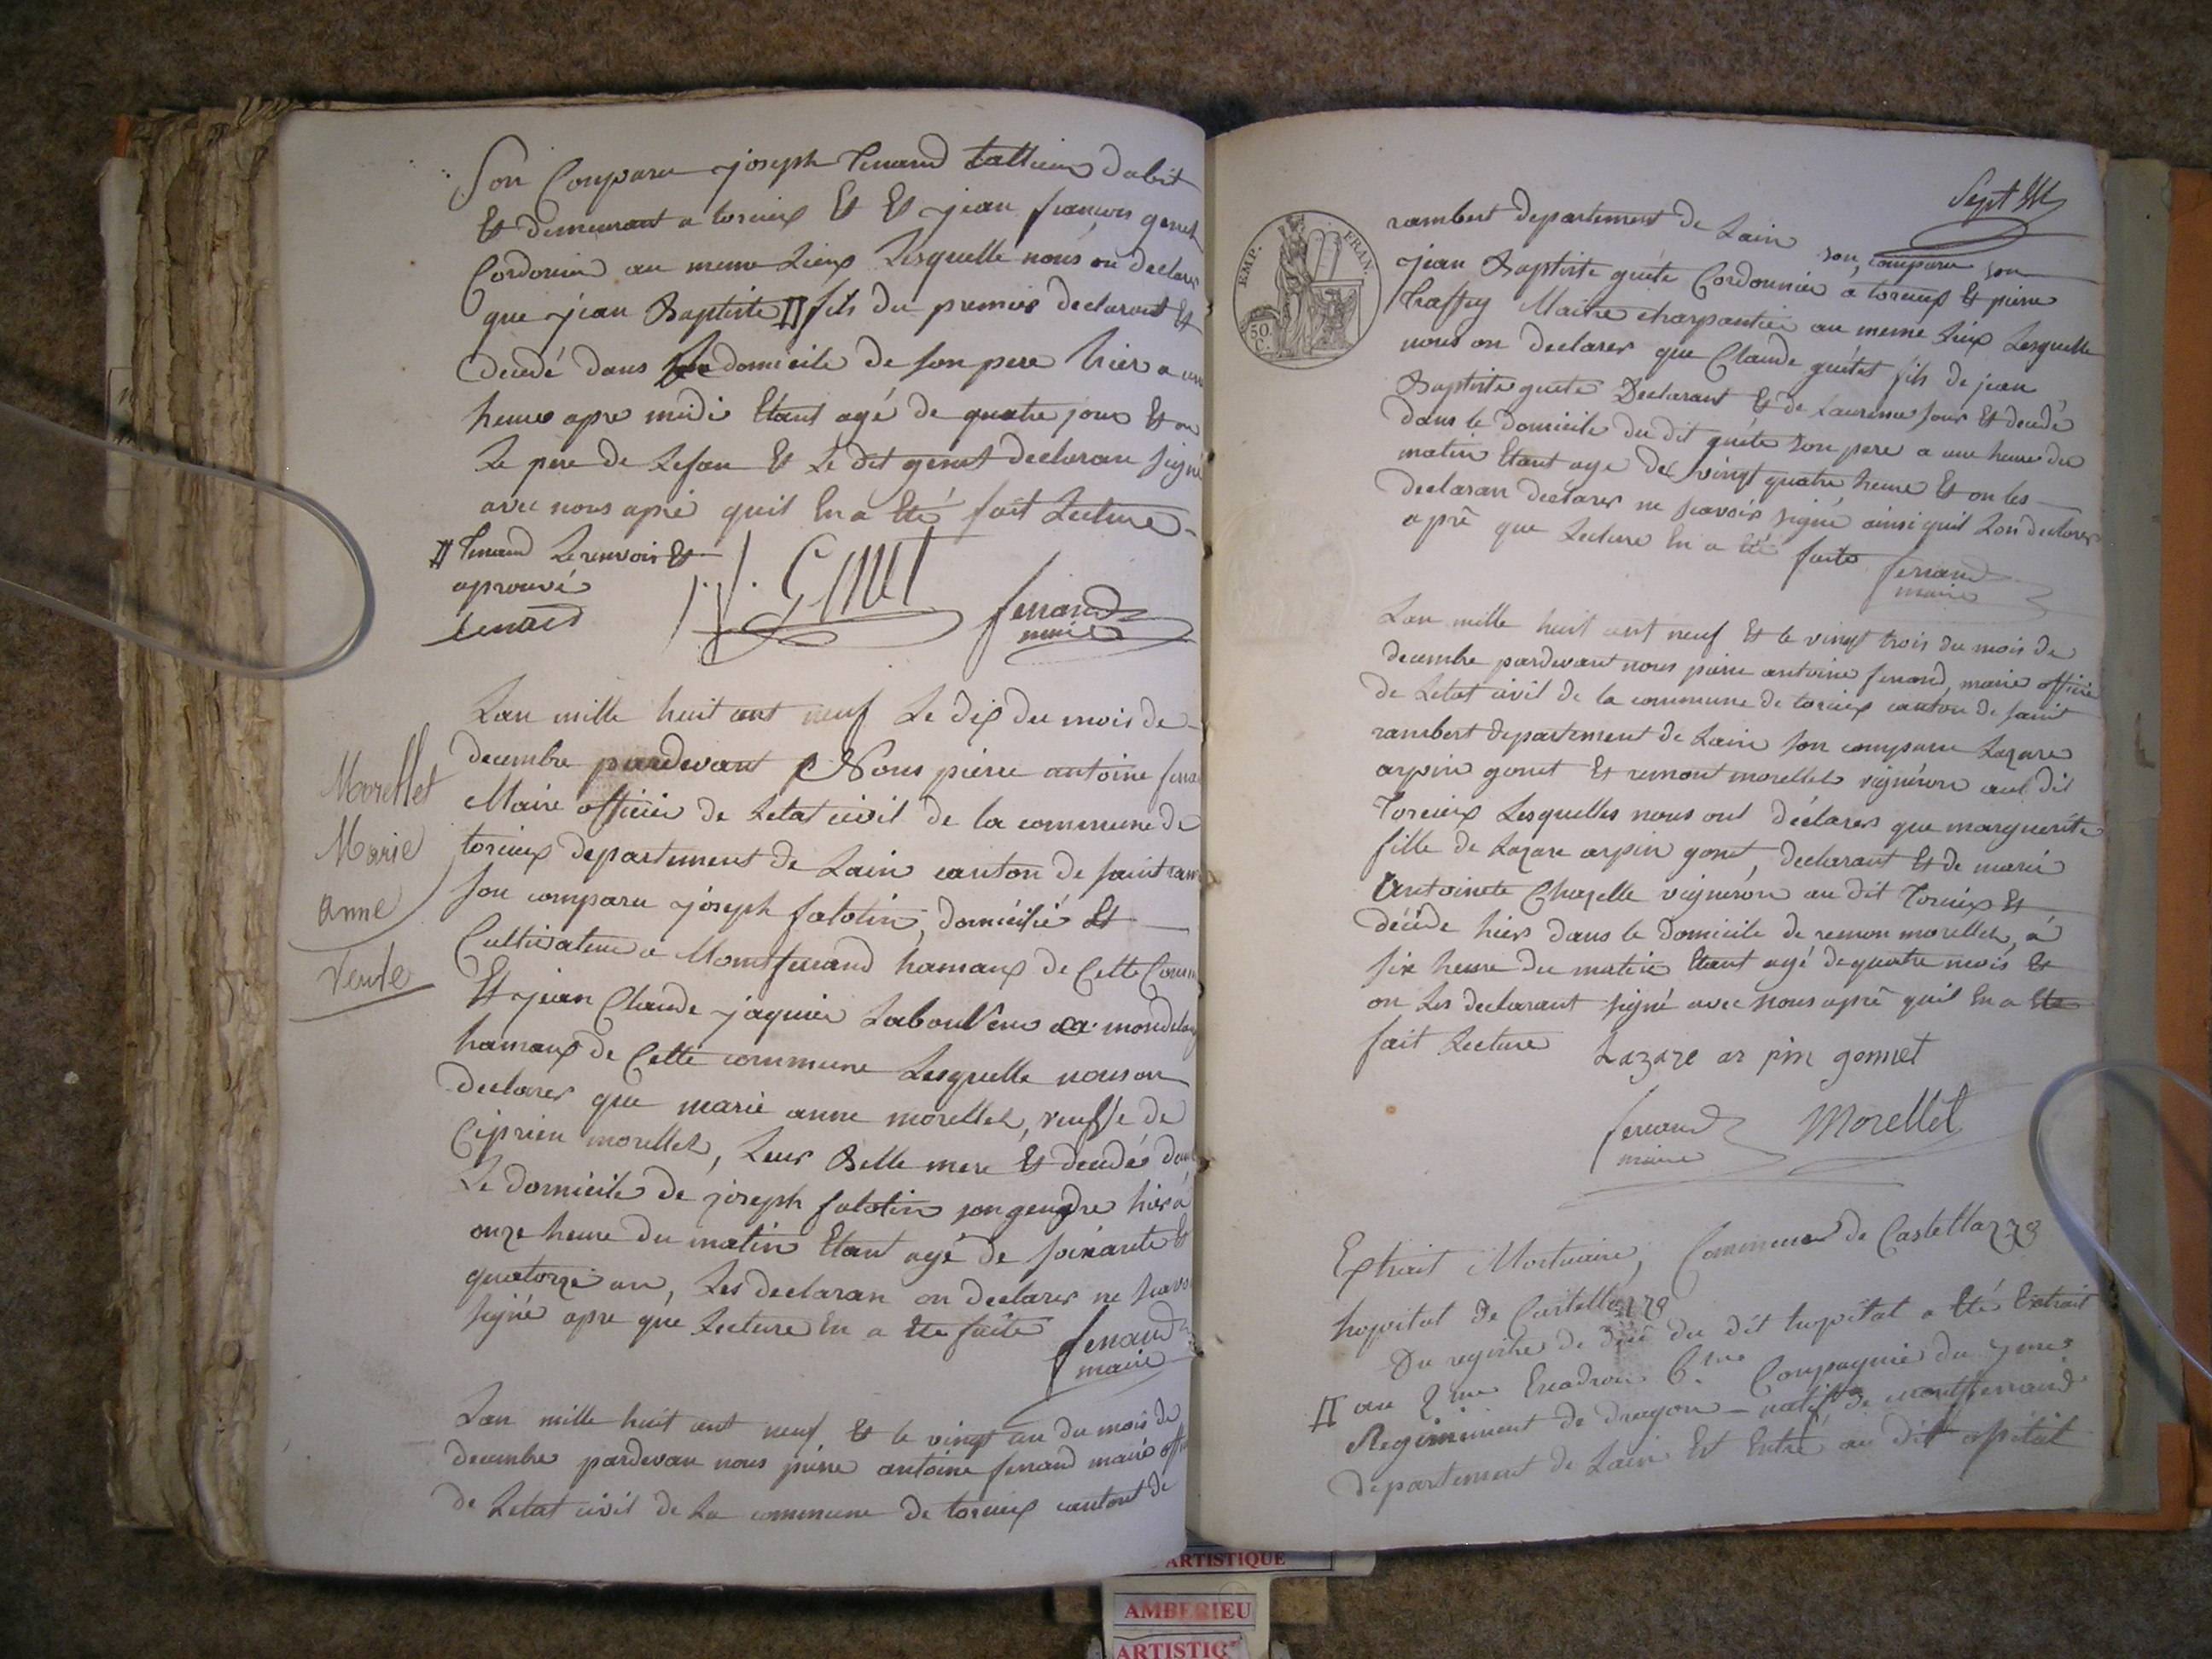 Son Comparu joseph Tenand tallieur dabit
Et demeurant a torcieux Et Et jean françois genet
Cordonier au meme Lieux Lesquelle nous on declarer
que jean Baptiste II fils du premier declarant Et
decedé dans le domicile de son pere hier a une
heures apre midi Etant agé de quatre jour Et on
Le pere de Lefan Et Le dit genet declaran signé
avec nous apré quil En a Eté fait Lecture
II Tenand Le renvoir Et
aprouvé
tenand
j. f. GENET
ferrand
maire
Morellet
Marie
anne
veuve
Lan mille huit cent neuf Le dix du mois de
decembre pardevant Nous pierre antoine ferra
Maire officier de Letat civil de la commune de
torcieux departement de Lain canton de saint ram
son comparu joseph falotin, domicilié Et
Cultivateur a Montferrand hamaux de Cette Comm
Et jean Claude jaquier Laboureur a
hamaux de Cette commune Lesquelle nous on
declarer que marie anne morellet, veusse de
Ciprien morellet, Leur Belle mere Et decedés dans
Le domicile de joseph falotin son gendre hier a
onze heure du matin Etant agé de soixante Et
quatorze an, Les declaran on declarer ne savoi
signé apre que Lecture En a Ete faite
ferrand
maire
Lan mille huit cent neuf Et le vingt un du mois de
decembre pardevan nous pierre antoine ferrand maire offi
de Letat civil de La commune de torcieux cantont de
Sept
EMP. FRAN.
50 C.
rambert departement de Lain son comparu son
jean Baptiste guéte Cordonnier a torcieux Et pierre
Maitre charpantier au meme Lieux Lesquelle
nous on declarer que Claude guétet fils de jean
Baptiste guéte Declarant Et de Laurence four Et decedé
dans le domicile du dit guéte son pere a une heure du
matin Etant age de vingt quatre heure Et on les
declaran declarer ne scavoir signé ainsi quil Lon declarer
aprê que Lecture En a Eté faite
ferrand
maire
Lan mille huit cent neuf Et le vingt trois du mois de
decembre pardevant nous pierre antoine ferrand, maire officié
de Letat civil de la commune de torcieux canton de saint
rambert departement de Lain son comparu Lazare
arpin gonet Et remont morellet vignéron aut dit
Torcieux Lesquelles nous ont déclarer que marguerite
fille de Lazare arpin gonet, declarant Et de marie
Antoinete Chapelle vignéron au dit Torcieux Et
décédé hier dans le domicile de remon morellet, á
six heure du matin Etant agé de quatre mois Et
on Les declarant signé avec nous aprê quil En a Ete
fait Lecture
Lazare ar pin gonnet
ferrand
maire
Morellet
Extrait Mortuaire, Commune de Castellazzo
hopital de Castellazzo
Du registre de du dit hopital a Eté Extrait
II au 2me Escadron 6.me Compagnie du 7me
Regimiment de dragon natif de montferrand
departement de Lain Est Entré au dit opital
ARTISTIQUE
AMBERIEU
ARTISTIQ